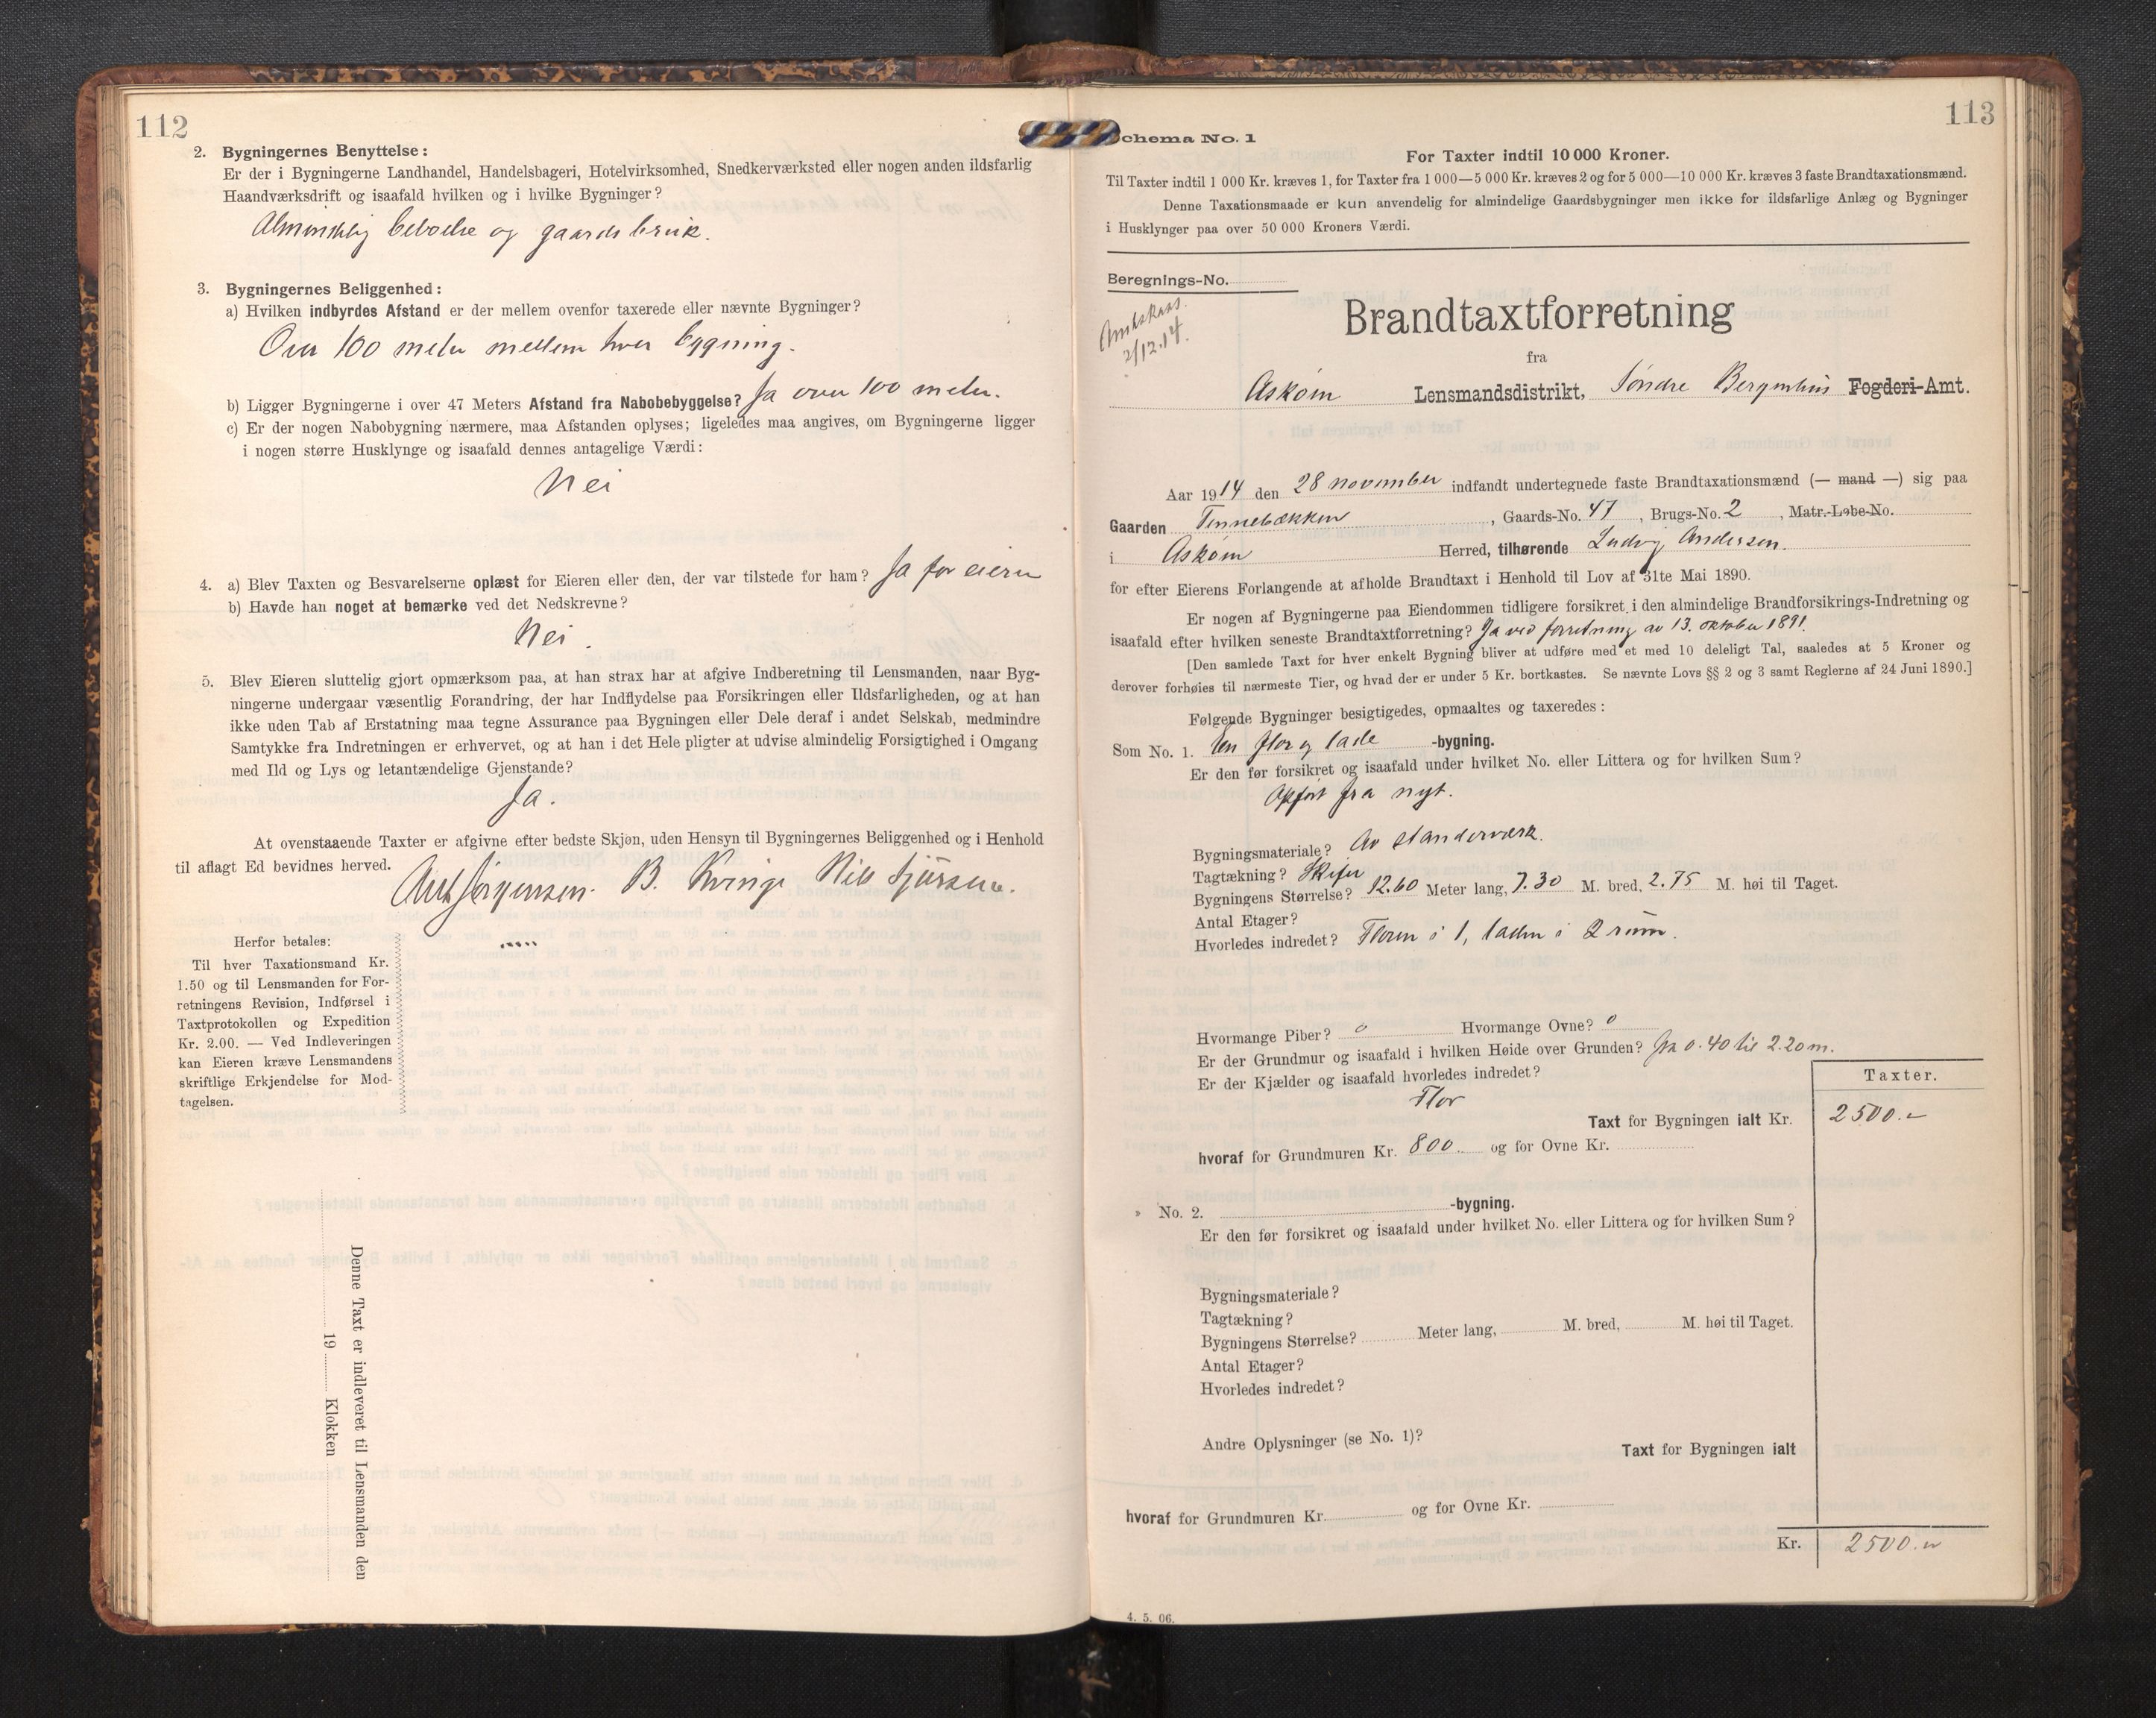 112
2. Bygningernes Benyttelse:
Er der i Bygningerne Landhandel, Handelsbageri, Hotelvirksomhed, Snedkerværksted eller nogen anden ildsfarlig
Haandværksdrift og isaafald hvilken og i hvilke Bygninger?
Almindelig beboelse og gaardsbruk.
3. Bygningernes Beliggenhed:
a) Hvilken indbyrdes Afstand er der mellem ovenfor taxerede eller nævnte Bygninger?
Over 100 meter mellem hver bygning.
b) Ligger Bygningerne i over 47 Meters Afstand fra Nabobebyggelse? Ja over 100 meter.
c) Er der nogen Nabobygning nærmere, maa Afstanden oplyses; ligeledes maa angives, om Bygningerne ligger
i nogen større Husklynge og isaafald dennes antagelige Værdi:
Nei
4. a) Blev Taxten og Besvarelserne oplæst for Eieren eller den, der var tilstede for ham? Ja for eieren
b) Havde han noget at bemærke ved det Nedskrevne?
Nei.
5. Blev Eieren sluttelig gjort opmærksom paa, at han strax har at afgive Indberetning til Lensmanden, naar Byg-
ningerne undergaar væsentlig Forandring, der har Indflydelse paa Forsikringen eller Ildsfarligheden, og at han
ikke uden Tab af Erstatning maa tegne Assurance paa Bygningen eller Dele deraf i andet Selskab, medmindre
Samtykke fra Indretningen er erhvervet, og at han i det Hele pligter at udvise almindelig Forsigtighed i Omgang
med Ild og Lys og letantændelige Gjenstande?
Ja.
At ovenstaaende Taxter er afgivne efter bedste Skjøn, uden Hensyn til Bygningernes Beliggenhed og i Henhold
til aflagt Ed bevidnes herved.
B. Kvinge Nils
Herfor betales:
Til hver Taxationsmand Kr.
1.50 og til Lensmanden for For-
retningens Revision, Indførsel i
Taxtprotokollen og Expedition
Kr. 2.00. — Ved Indleveringen
kan Eieren kræve Lensmandens
skriftlige Erkjendelse for Mod-
tagelsen.
Denne Taxt er indleveret til Lensmanden den
19 Klokken
113
chema No. 1
For Taxter indtil 10 000 Kroner.
Til Taxter indtil 1 000 Kr. kræves 1, for Taxter fra 1 000—5 000 Kr. kræves 2 og for 5 000—10 000 Kr. kræves 3 faste Brandtaxationsmænd.
Denne Taxationsmaade er kun anvendelig for almindelige Gaardsbygninger men ikke for ildsfarlige Anlæg og Bygninger
i Husklynger paa over 50 000 Kroners Værdi.
Beregnings-No.
2/12.14.
Brandtaxtforretning
fra
Askøen Lensmandsdistrikt, Søndre Bergenhus Fogderi-Amt.
Aar 1914 den 28 november indfandt undertegnede faste Brandtaxationsmænd (— mand —) sig paa
Gaarden Tennebækken, Gaards-No. 47, Brugs-No. 2, Matr.-Løbe-No.
i Askøen Herred, tilhørende Ludvig Andersen.
for efter Eierens Forlangende at afholde Brandtaxt i Henhold til Lov af 31te Mai 1890.
Er nogen af Bygningerne paa Eiendommen tidligere forsikret i den almindelige Brandforsikrings-Indretning og
isaafald efter hvilken seneste Brandtaxtforretning? Ja ved forretning av 13. oktober 1891.
[Den samlede Taxt for hver enkelt Bygning bliver at udføre med et med 10 deleligt Tal, saaledes at 5 Kroner og
derover forhøies til nærmeste Tier, og hvad der er under 5 Kr. bortkastes. Se nævnte Lovs §§ 2 og 3 samt Reglerne af 24 Juni 1890.]
Følgende Bygninger besigtigedes, opmaaltes og taxeredes:
Som No. 1. En flor og lade -bygning.
Er den før forsikret og isaafald under hvilket No. eller Littera og for hvilken Sum?
Opført fra nyt.
Bygningsmateriale? Av standerværk.
Tagtækning? Skifer
Bygningens Størrelse? 12.60 Meter lang, 7.30 M. bred, 2.75 M. høi til Taget.
Antal Etager?
Hvorledes indredet? Floren i 1, laden i 2 rum.
Hvormange Piber? 0 Hvormange Ovne? 0
Er der Grundmur og isaafald i hvilken Høide over Grunden? fra 0.40 til 2.20 m.
Er der Kjælder og isaafald hvorledes indredet?
Flor
Taxter.
Taxt for Bygningen ialt Kr. 2500.-
hvoraf for Grundmuren Kr. 800.. og for Ovne Kr.
» No. 2. -bygning.
Er den før forsikret og isaafald under hvilket No. eller Littera og for hvilken Sum?
Bygningsmateriale?
Tagtækning?
Bygningens Størrelse? Meter lang, M. bred, M. høi til Taget.
Antal Etager?
Hvorledes indredet?
Andre Oplysninger (se No. 1)?
Taxt for Bygningen ialt
hvoraf for Grundmuren Kr. og for Ovne Kr.
Kr. 2500.-
4. 5. 06.